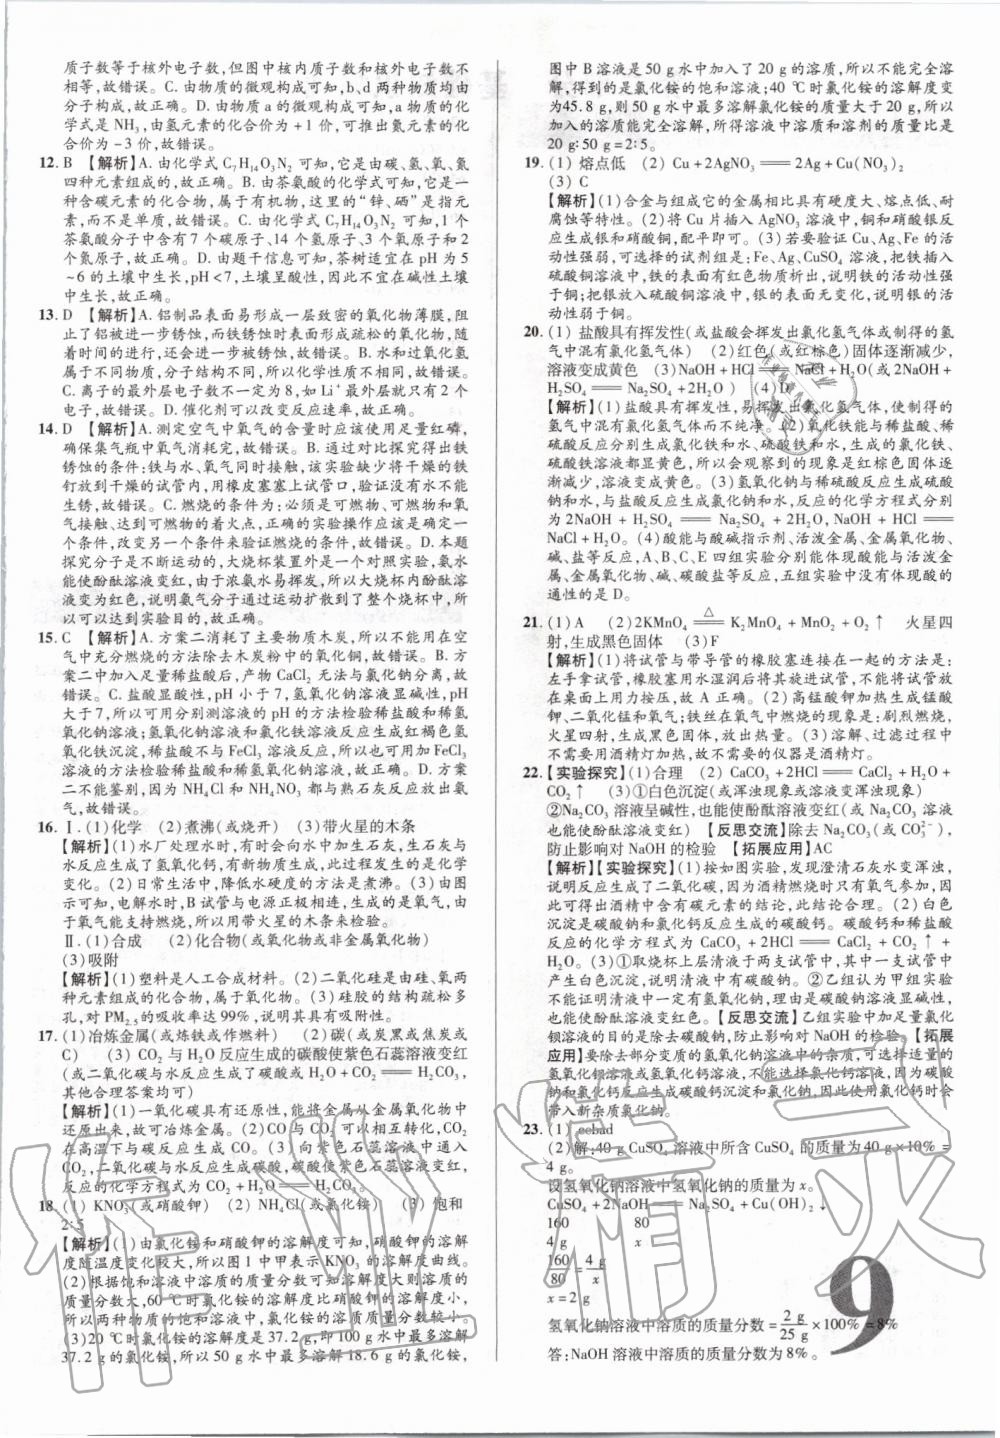 质子数等于核外电子数,但图中核内质子数和核外电子数
分别为11、10,故错误。C. 由物质的微观构成可知,b、d 两种物质均由
分子构成,故正确。D. 由物质 a 的微观构成可知,a 物质的化
学式是 NH3,由氢元素的化合价为 +1 价,可推出氮元素的化
合价为 -3 价,故错误。
12. B 【解析】A. 由化学式 C7H14O3N2 可知,它是由碳、氢、氧、氮
四种元素组成的,故正确。B. 由茶氨酸的化学式可知,它是一
种含碳元素的化合物,属于有机物,这里的“锌、硒”是指元
素,而不是单质,故错误。C. 由化学式 C7H14O3N2 可知,1 个
茶氨酸分子中含有 7 个碳原子、14 个氢原子、3 个氧原子和 2
个氮原子,故正确。D. 由题干信息可知,茶树适宜在 pH 为 5
~6 的土壤中生长,pH<7,土壤呈酸性,因此不宜在碱性土壤
中生长,故正确。
13. D 【解析】A. 铝制品表面易形成一层致密的氧化物薄膜,阻
止了铝被进一步锈蚀,而铁锈蚀时表面形成疏松的氧化物,随
着时间的进行,还会进一步被锈蚀,故错误。B. 水和过氧化氢
属于不同物质,分子结构不同,所以化学性质不相同,故错误。
C. 离子的最外层电子数不一定为 8,如 Li+最外层就只有 2 个
电子,故错误。D. 催化剂可以改变反应速率,故正确。
14. D 【解析】A. 测定空气中氧气的含量时应该使用足量红磷,
确保集气瓶中氧气消耗完,故错误。B. 通过对比探究得出铁
锈蚀的条件:铁与水、氧气同时接触,该实验缺少将干燥的铁
钉放到干燥的试管内,用橡皮塞塞上试管口,验证没有水不能
生锈,故错误。C. 燃烧的条件为:必须是可燃物、可燃物和氧
气接触、达到可燃物的着火点,正确的实验操作应该是确定一
个不变,改变另一个条件来验证燃烧的条件,故错误。D. 本题
探究分子是不断运动的,大烧杯装置外是一个对照实验,氨水
能使酚酞溶液变红,由于浓氨水易挥发,所以大烧杯内酚酞溶
液变为红色,说明氨气分子通过运动扩散到了整个烧杯中,所
以可以达到实验目的,故正确。
15. C 【解析】A. 方案二消耗了主要物质木炭,所以不能用在空
气中充分燃烧的方法除去木炭粉中的氧化铜,故错误。B. 方
案二中加入足量稀盐酸后,产物 CaCl2 无法与氯化钠分离,故
错误。C. 盐酸显酸性,pH 小于 7,氢氧化钠溶液显碱性,pH
大于 7,所以可用分别测溶液的 pH 的方法检验稀盐酸和稀氢
氧化钠溶液;氢氧化钠溶液和氯化铁溶液反应生成红褐色氢
氧化铁沉淀,稀盐酸不与 FeCl3 溶液反应,所以也可用加 FeCl3
溶液的方法检验稀盐酸和稀氢氧化钠溶液,故正确。D. 方案
二不能鉴别,因为 NH4Cl 和 NH4NO3 都与熟石灰反应放出氨
气,故错误。
16. Ⅰ. (1)化学 (2)煮沸(或烧开) (3)带火星的木条
【解析】(1)水厂处理水时,有时会向水中加生石灰,生石灰与
水反应生成了氢氧化钙,有新物质生成,此过程发生的是化学
变化。(2)日常生活中,降低水硬度的方法是煮沸。(3)由图
示可知,电解水时,B 试管与电源正极相连,生成的是氧气,由
于氧气能支持燃烧,所以用带火星的木条来检验。
Ⅱ. (1)合成 (2)化合物(或氧化物或非金属氧化物)
(3)吸附
【解析】(1)塑料是人工合成材料。(2)二氧化硅是由硅、氧两
种元素组成的化合物,属于氧化物。(3)硅胶的结构疏松多
孔,对 PM2.5的吸收率达 99%,说明其具有吸附性。
17. (1)冶炼金属(或炼铁或作燃料) (2)碳(或炭黑或焦炭或
C) (3)CO2 与 H2O 反应生成的碳酸使紫色石蕊溶液变红
(或二氧化碳与水反应生成了碳酸或 H2O + CO2 ═══ H2CO3,
其他合理答案均可)
【解析】(1)一氧化碳具有还原性,能将金属从金属氧化物中
还原出来,故可冶炼金属。(2)CO与 CO2 可以相互转化,CO2
在高温下与碳反应生成 CO。(3 向紫色石蕊溶液中通入
二氧化碳,二氧化碳与水反应生成碳酸,碳酸使紫色石蕊溶液变红,
反应的化学方程式为 CO2 + H2O ═══ H2CO3。
18. (1) KNO3(或硝酸钾) (2) NH4Cl(或氯化铵) (3) 饱和
2∶5
【解析】(1)由氯化铵和硝酸钾的溶解度可知,硝酸钾的溶解
度随温度变化较大,所以图 1 中甲表示 KNO3 的溶解度曲线。
(2)根据饱和溶液中溶质的质量分数可知溶解度大则溶质的
质量分数大,60 ℃时氯化铵的溶解度比硝酸钾的溶解度小,
所以两种物质的饱和溶液中,氯化铵的溶质质量分数较小。
(3)20 ℃时氯化铵的溶解度是37.2 g,即100 g水中最多溶解
37.2 g的氯化铵,所以 50 g 水中最多溶解 18.6 g 的氯化铵,
图中 B 溶液是 50 g 水中加入了 20 g 的溶质,所以不能完全溶
解,得到的是氯化铵的饱和溶液;40 ℃时氯化铵的溶解度变
为45.8 g,则 50 g 水中最多溶解氯化铵的质量大于 20 g,所以
加入的溶质能完全溶解,所得溶液中溶质和溶剂的质量比是
20 g∶50 g=2∶5。
19. (1) 熔点低 (2) Cu + 2AgNO3 ═══ 2Ag + Cu(NO3)2
(3) C
【解析】(1)合金与组成它的金属相比具有硬度大、熔点低、耐
腐蚀等特性。(2)将 Cu 片插入 AgNO3 溶液中,铜和硝酸银反
应生成银和硝酸铜,配平即可。(3)若要验证 Cu、Ag、Fe 的活
动性强弱,可选择的试剂组是:Fe、Ag、CuSO4 溶液,把铁插入
硫酸铜溶液中,铁的表面有红色物质析出,说明铁的活动性强
于铜;把银放入硫酸铜溶液中,银的表面无变化,说明铜的活
动性弱于铜。
20. (1) 盐酸具有挥发性(或盐酸会挥发出氯化氢气体或制得的氢
气中混有氯化氢气体) (2)红色(或红棕色)固体逐渐减少,
溶液变成黄色 (3)NaOH + HCl ═══ NaCl + H2O(或2NaOH +
H2SO4 ═══ Na2SO4 +2H2O) (4)D
【解析】(1)盐酸具有挥发性,易挥发出氯化氢气体,使制得的
氢气中混有氯化氢气体而不纯净。(2)氧化铁能与稀盐酸、稀
硫酸反应分别生成氯化铁和水、硫酸铁和水,生成的氯化铁、
硫酸铁溶液都显黄色,所以会观察到的现象是红棕色固体逐
渐减少,溶液变成黄色。(3)氢氧化钠与稀硫酸反应生成硫酸
钠和水,与盐酸反应生成氯化钠和水,反应的化学方程式分别
为 2NaOH + H2SO4 ═══ Na2SO4 + 2H2O, NaOH + HCl ═══
NaCl + H2O。(4)酸能与酸碱指示剂、活泼金属、金属氧化物、
碱、盐等反应,A、B、C、E 四组实验分别能体现酸能与活泼金
属、金属氧化物、碱、碳酸盐等反应,五组实验没有体现酸的
通性的是 D。
21. (1)A (2)2KMnO4 ═△═ K2MnO4 + MnO2 + O2↑ 火星四
射,生成黑色固体 (3)F
【解析】(1)将试管与带导管的橡胶塞连接在一起的方法是:
左手拿试管,玻璃导管用水湿润后将其旋进试管,不能将试管放
在桌面上用力按压,故 A 正确。(2)高锰酸钾加热生成锰酸
钾、二氧化锰和氧气;铁丝在氧气中燃烧的现象是:剧烈燃烧,
火星四射,生成黑色固体,放出热量。(3)溶解、过滤过程中
不需要用酒精灯加热,故不需要的仪器是酒精灯。
22. 【实验探究】(1)合理 (2) CaCO3 + 2HCl ═══ CaCl2 + H2O +
CO2↑ (3)①白色沉淀(或浑浊现象或溶液变浑浊现象)
②Na2CO3 溶液呈碱性,也能使酚酞溶液变红(或 Na2CO3 溶液
也能使酚酞溶液变红) 【反思交流】除去 Na2CO3(或 CO3²⁻),
防止影响对 NaOH 的检验 【拓展应用】AC
【解析】【实验探究】(1)按如图实验,发现澄清石灰水变浑浊,
说明反应生成了二氧化碳,因为酒精燃烧时只有氧气参加,因
此可得出酒精中含有碳元素的结论,此结论合理。(2)白色
沉淀是碳酸钠与氯化钙反应生成的碳酸钙。碳酸钙和稀盐酸
反应的化学方程式为 CaCO3 + 2HCl ═══ CaCl2 + CO2↑ +
H2O。(3)①取烧杯上层清液于两支试管中,其中一支试管中
产生白色沉淀,说明清液中有碳酸钠。②乙组认为甲组实验
不能证明清液中一定含有氢氧化钠,理由是碳酸钠溶液显碱性,
也能使酚酞溶液变红。【反思交流】乙组实验中加足量氯化
钡溶液的目的是除去碳酸钠,防止影响对 NaOH 的检验。【拓展
应用】要除去部分变质的氢氧化钠溶液中的杂质,可选择适量的
氢氧化钡溶液或氢氧化钙溶液,不能选择氯化钙溶液,因为碳酸
钠和氯化钙反应生成碳酸钙沉淀和氯化钠,因此使用氯化钙时会
带入新杂质氯化钠。
23. (1) ecbad
(2)解:40 g CuSO4 溶液中所含 CuSO4 的质量为40 g×10% =
4 g。
设氢氧化钠溶液中氢氧化钠的质量为 x。
CuSO4 + 2NaOH ═══ Na2SO4 + Cu(OH)2↓
160 80
4 g x
160/80 = 4 g/x
x = 2 g
氢氧化钠溶液中溶质的质量分数 = 2 g/25 g ×100% = 8%
答:NaOH 溶液中溶质的质量分数为 8%。
9
作业精灵